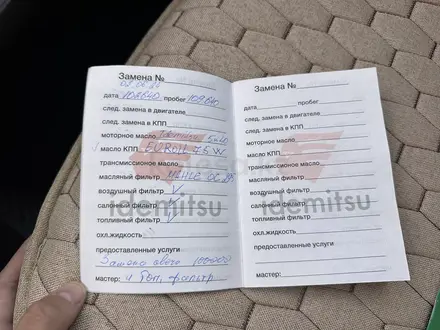 Замена №
02.06.24
дата 108640 пробег 108640
след. замена в двигателе
след. замена в КПП
моторное масло Idemitsu 5w40
масло КПП EUROL 75W
трансмиссионое масло
масляный фильтр MAHLE OC
воздушный фильтр
салонный фильтр
топливный фильтр
охл.жидкость
предоставленные услуги
Замена свеч 100000
мастер: и Топ. фильтр
idemitsu
Замена №
дата пробег
след. замена в двигателе
след. замена в КПП
моторное масло
масло КПП
трансмиссионое масло
масляный фильтр
воздушный фильтр
салонный фильтр
топливный фильтр
охл.жидкость
предоставленные услуги
мастер:
idemitsu